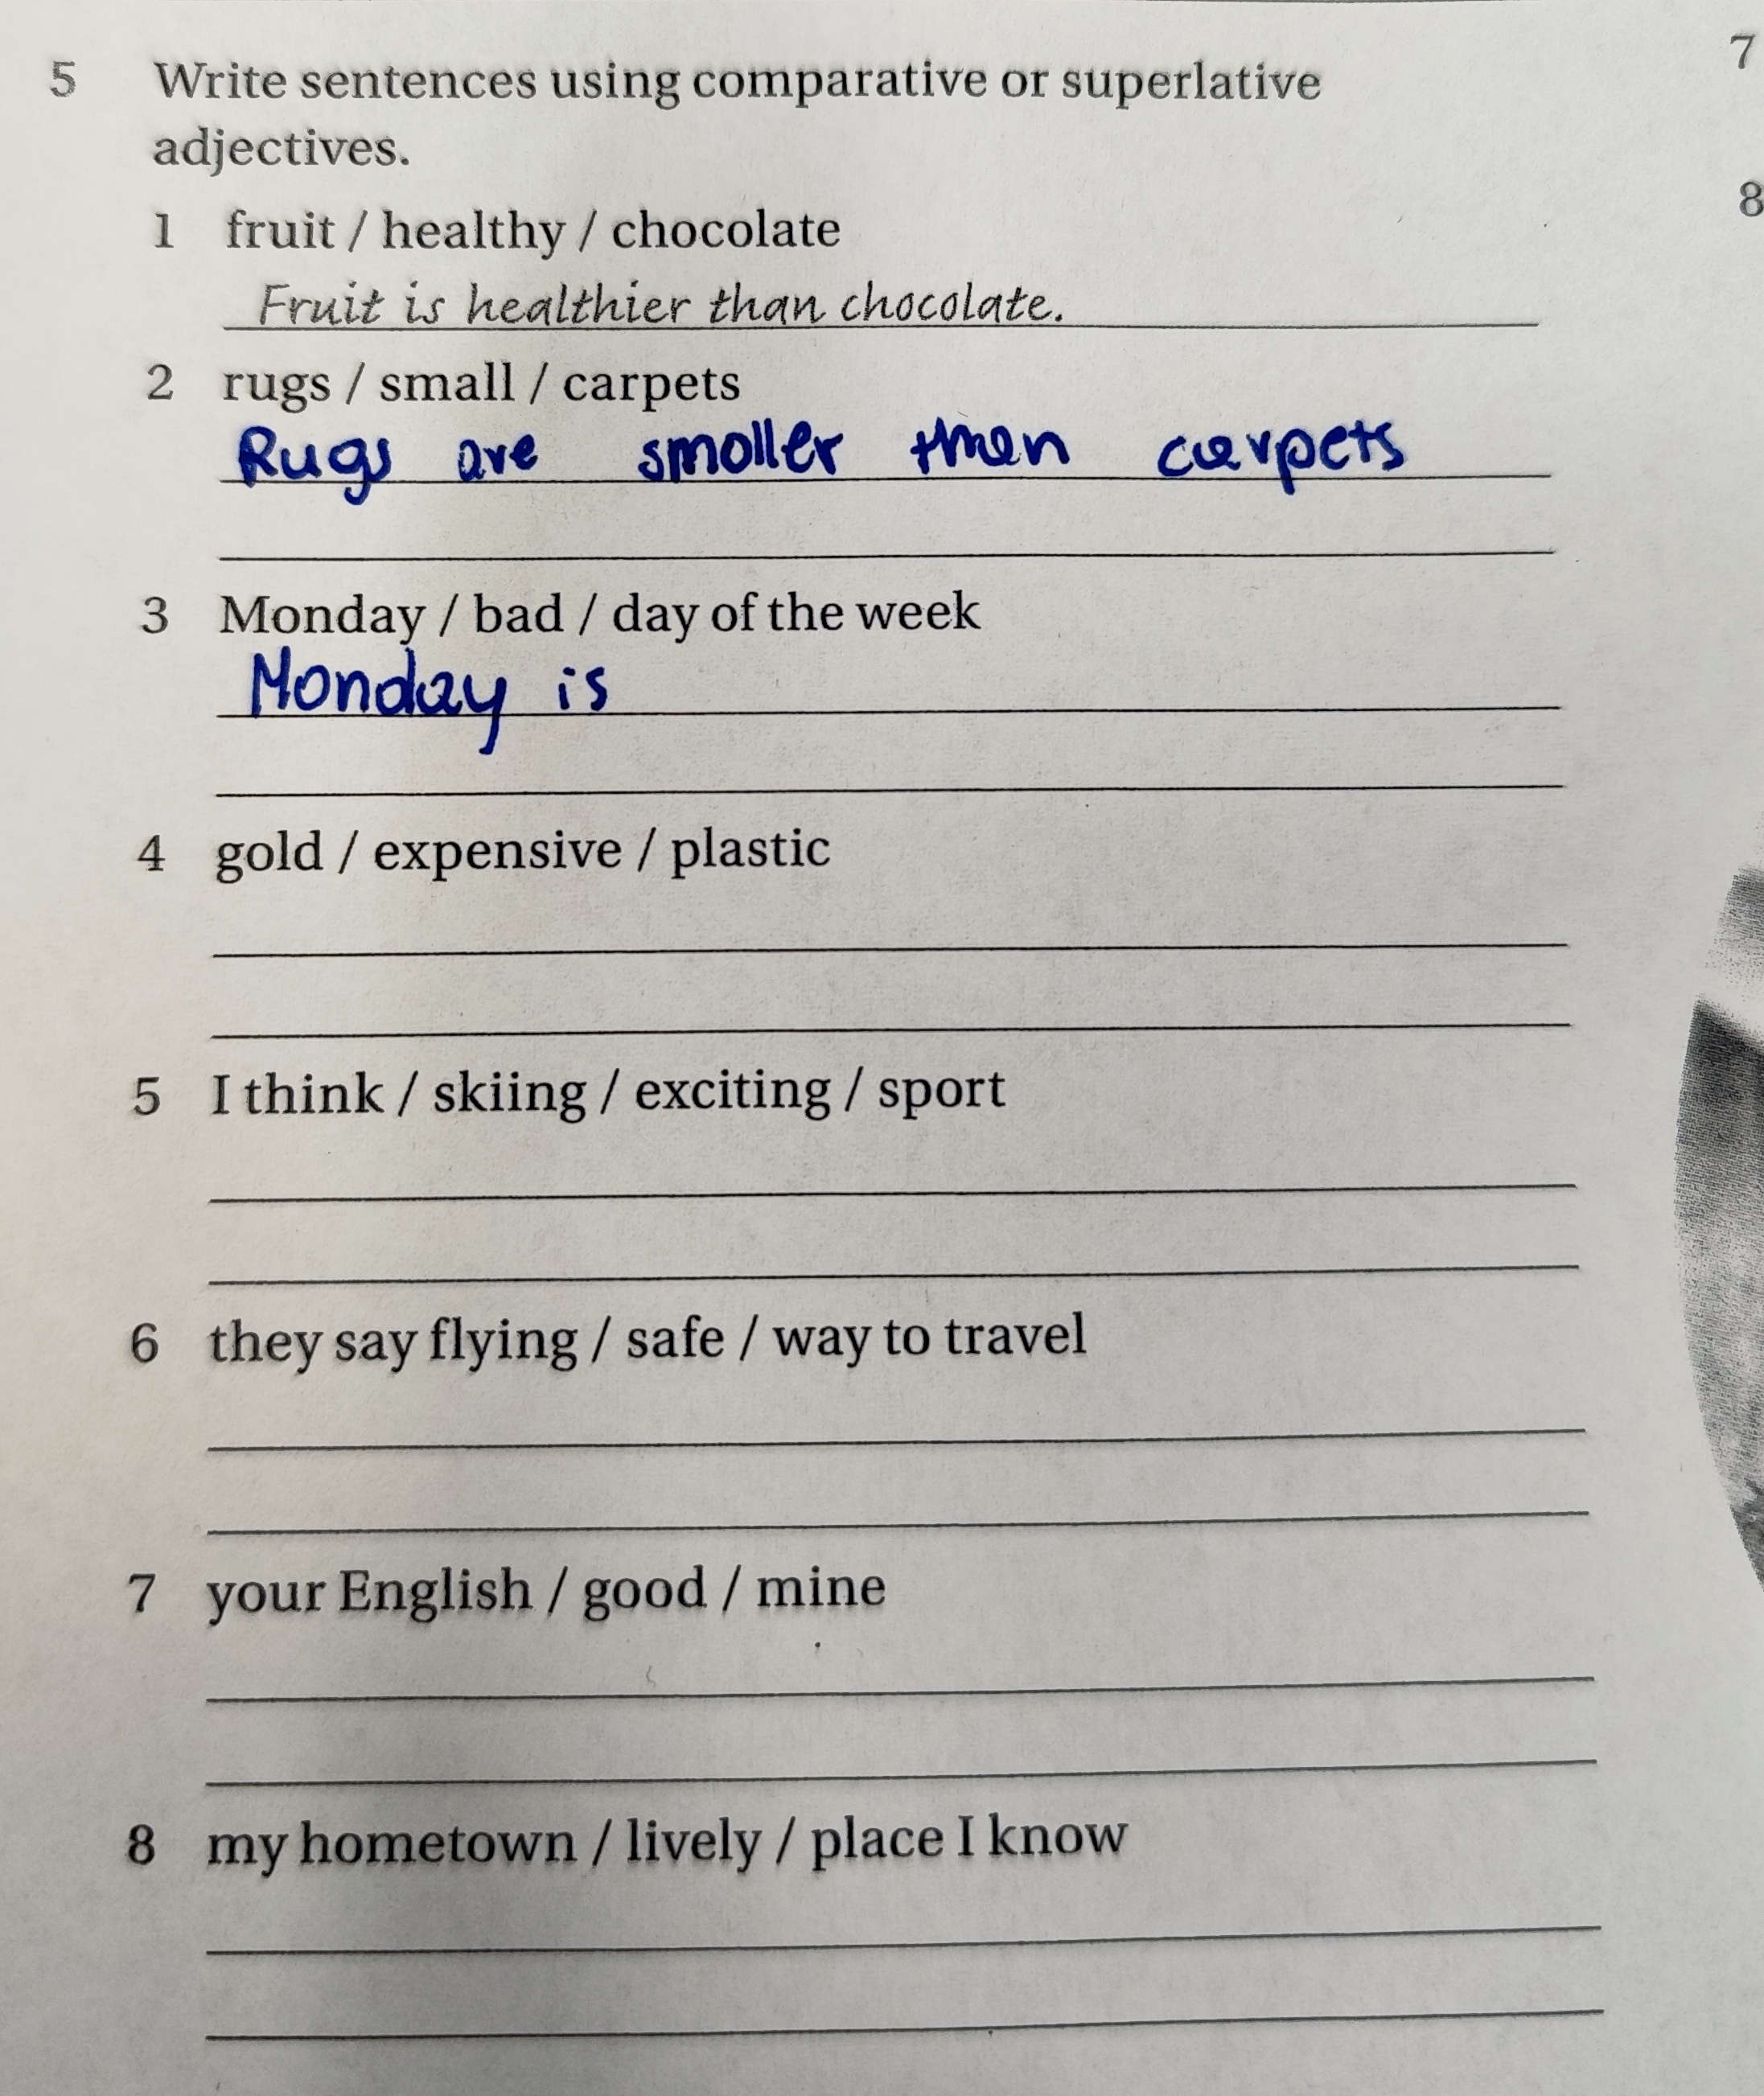 5 Write sentences using comparative or superlative
adjectives.
1 fruit / healthy / chocolate
Fruit is healthier than chocolate.
2 rugs / small / carpets
Rugs are smoller then carpets
3 Monday / bad / day of the week
Monday is
4 gold / expensive / plastic
5 I think / skiing / exciting / sport
6 they say flying / safe / way to travel
7 your English / good / mine
8 my hometown / lively / place I know
7
8